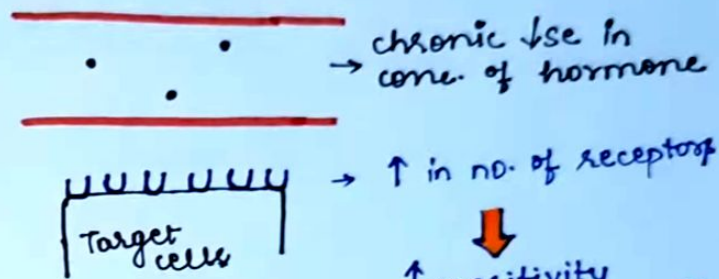 → chronic ↓se in
conc. of hormone
→ ↑ in no. of receptors
Target
cells